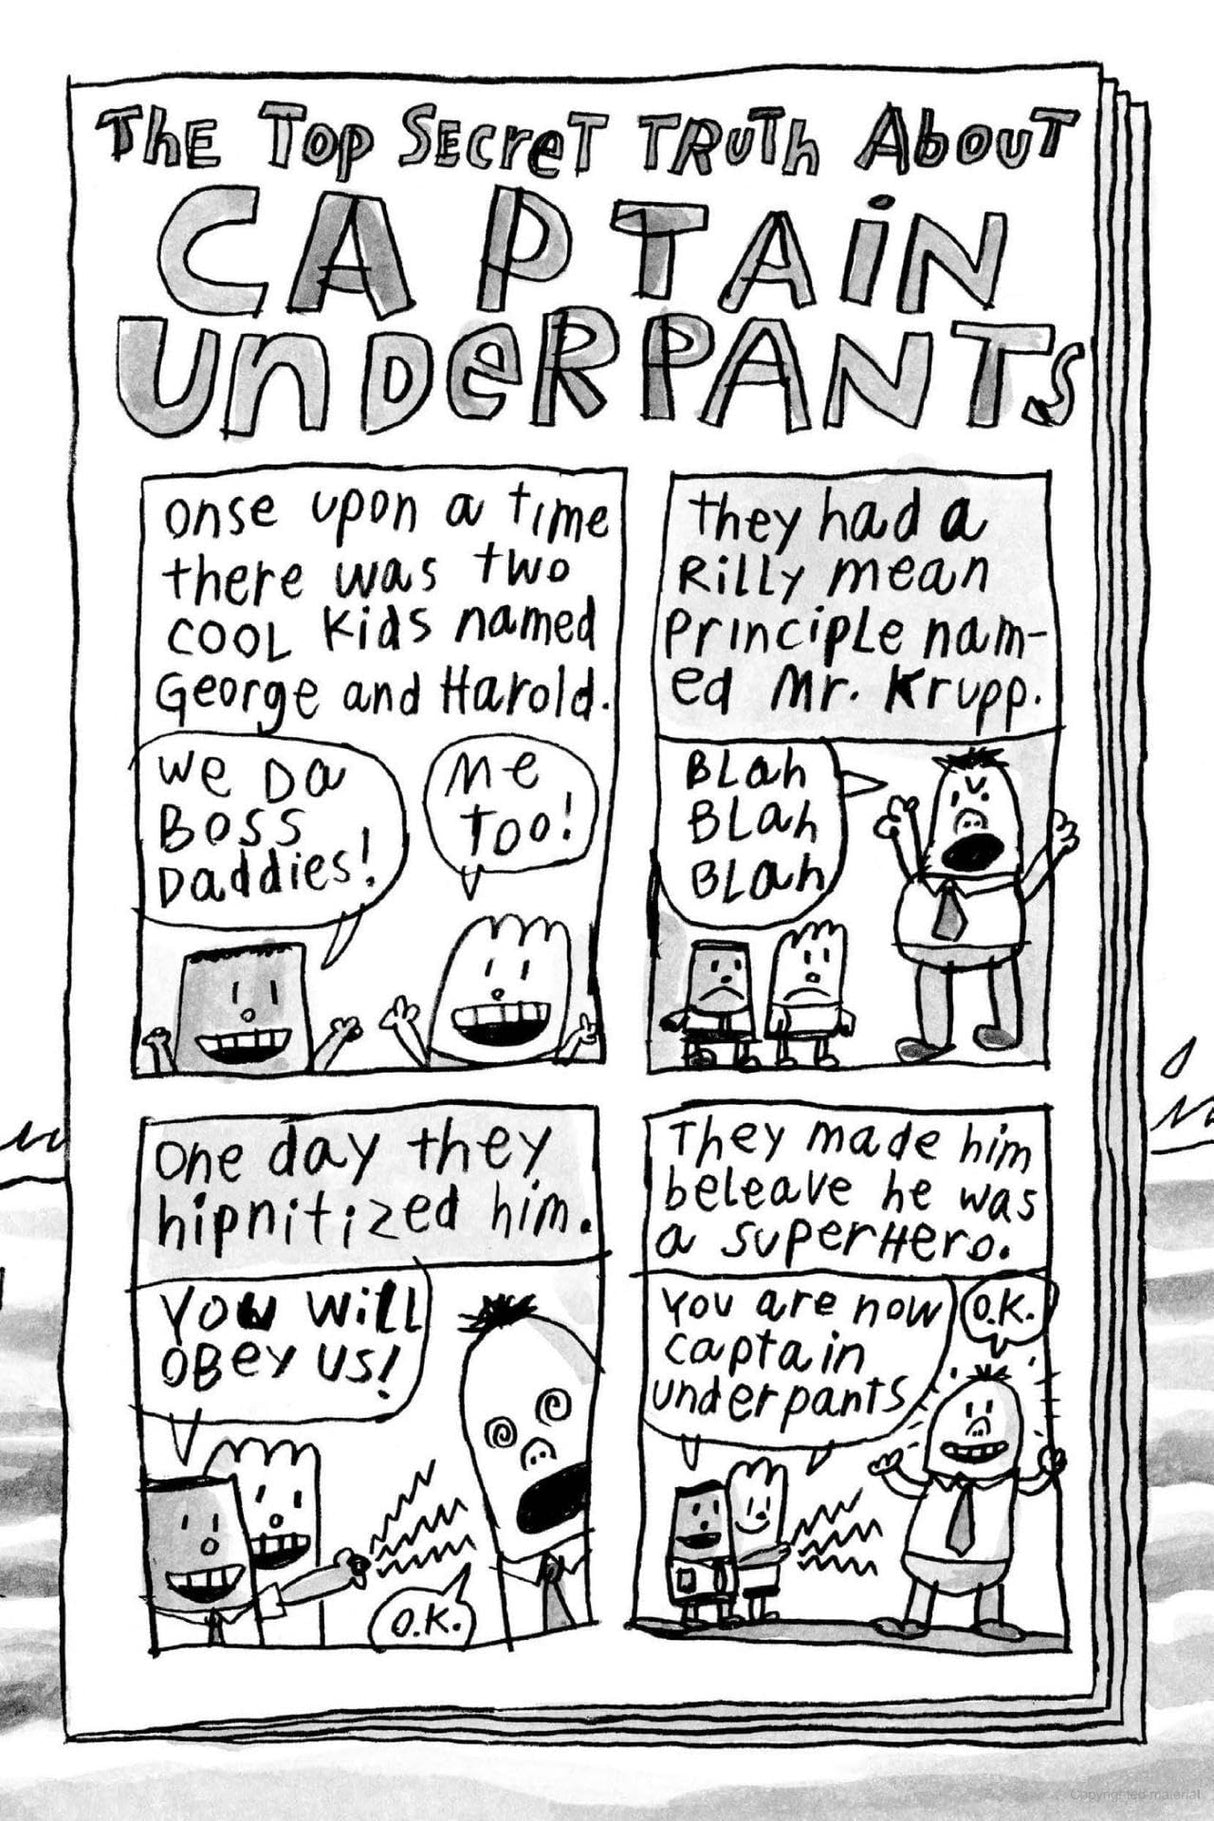 The Top Secret Truth About
CAPTAIN
UnDeRPANTs
onse upon a time
there was two
cool kids named
George and Harold.
We Da
Boss
Daddies!
Me
Too!
they had a
Rilly mean
Principle nam-
ed Mr. Krupp.
BLah
BLah
BLah
One day they
hipnitized him.
You will
OBey us!
O.K.
They made him
beleave he was
a superHero.
You are now
captain
underpants
O.K.
Copyrighted material